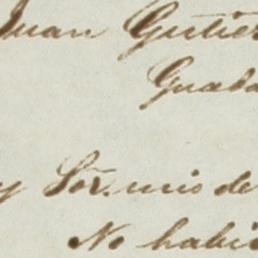 Juan Gutier
Guada
y Sor. mio de
No habi